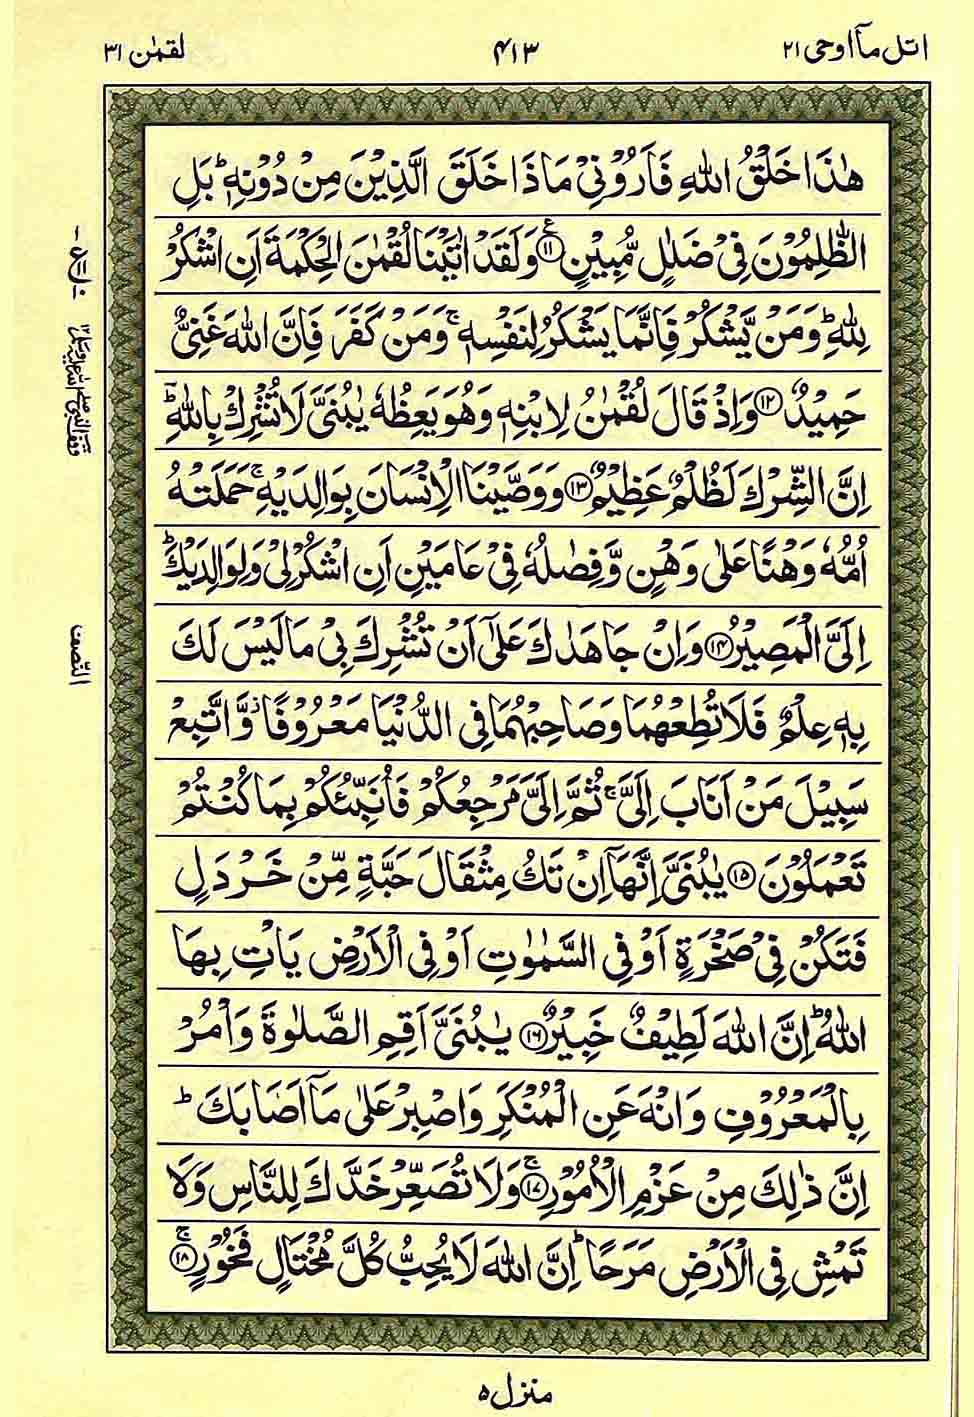 اتل مآ اوحی ۲۱
۴۱۳
لقمٰن ۳۱
هٰذَا خَلْقُ اللّٰهِ فَاَرُوْنِيْ مَاذَا خَلَقَ الَّذِيْنَ مِنْ دُوْنِهٖ ؕ بَلِ
الظّٰلِمُوْنَ فِيْ ضَلٰلٍ مُّبِيْنٍ ﴿۱۱﴾ وَلَقَدْ اٰتَيْنَا لُقْمٰنَ الْحِكْمَةَ اَنِ اشْكُرْ
لِلّٰهِ ؕ وَمَنْ يَّشْكُرْ فَاِنَّمَا يَشْكُرُ لِنَفْسِهٖ ۚ وَمَنْ كَفَرَ فَاِنَّ اللّٰهَ غَنِيٌّ
حَمِيْدٌ ﴿۱۲﴾ وَاِذْ قَالَ لُقْمٰنُ لِابْنِهٖ وَهُوَ يَعِظُهٗ يٰبُنَيَّ لَا تُشْرِكْ بِاللّٰهِ ؔؕ
اِنَّ الشِّرْكَ لَظُلْمٌ عَظِيْمٌ ﴿۱۳﴾ وَوَصَّيْنَا الْاِنْسَانَ بِوَالِدَيْهِ ۚ حَمَلَتْهُ
اُمُّهٗ وَهْنًا عَلٰى وَهْنٍ وَّفِصٰلُهٗ فِيْ عَامَيْنِ اَنِ اشْكُرْ لِيْ وَلِوَالِدَيْكَ ؕ
اِلَيَّ الْمَصِيْرُ ﴿۱۴﴾ وَاِنْ جَاهَدٰكَ عَلٰۤى اَنْ تُشْرِكَ بِيْ مَا لَيْسَ لَكَ
بِهٖ عِلْمٌ فَلَا تُطِعْهُمَا وَصَاحِبْهُمَا فِي الدُّنْيَا مَعْرُوْفًا ؗ وَّاتَّبِعْ
سَبِيْلَ مَنْ اَنَابَ اِلَيَّ ۚ ثُمَّ اِلَيَّ مَرْجِعُكُمْ فَاُنَبِّئُكُمْ بِمَا كُنْتُمْ
تَعْمَلُوْنَ ﴿۱۵﴾ يٰبُنَيَّ اِنَّهَاۤ اِنْ تَكُ مِثْقَالَ حَبَّةٍ مِّنْ خَرْدَلٍ
فَتَكُنْ فِيْ صَخْرَةٍ اَوْ فِي السَّمٰوٰتِ اَوْ فِي الْاَرْضِ يَاْتِ بِهَا
اللّٰهُ ؕ اِنَّ اللّٰهَ لَطِيْفٌ خَبِيْرٌ ﴿۱۶﴾ يٰبُنَيَّ اَقِمِ الصَّلٰوةَ وَاْمُرْ
بِالْمَعْرُوْفِ وَانْهَ عَنِ الْمُنْكَرِ وَاصْبِرْ عَلٰى مَاۤ اَصَابَكَ ؕ
اِنَّ ذٰلِكَ مِنْ عَزْمِ الْاُمُوْرِ ﴿۱۷﴾ۚ وَلَا تُصَعِّرْ خَدَّكَ لِلنَّاسِ وَلَا
تَمْشِ فِي الْاَرْضِ مَرَحًا ؕ اِنَّ اللّٰهَ لَا يُحِبُّ كُلَّ مُخْتَالٍ فَخُوْرٍ ﴿۱۸﴾ۚ
النّصف
منزل ۵